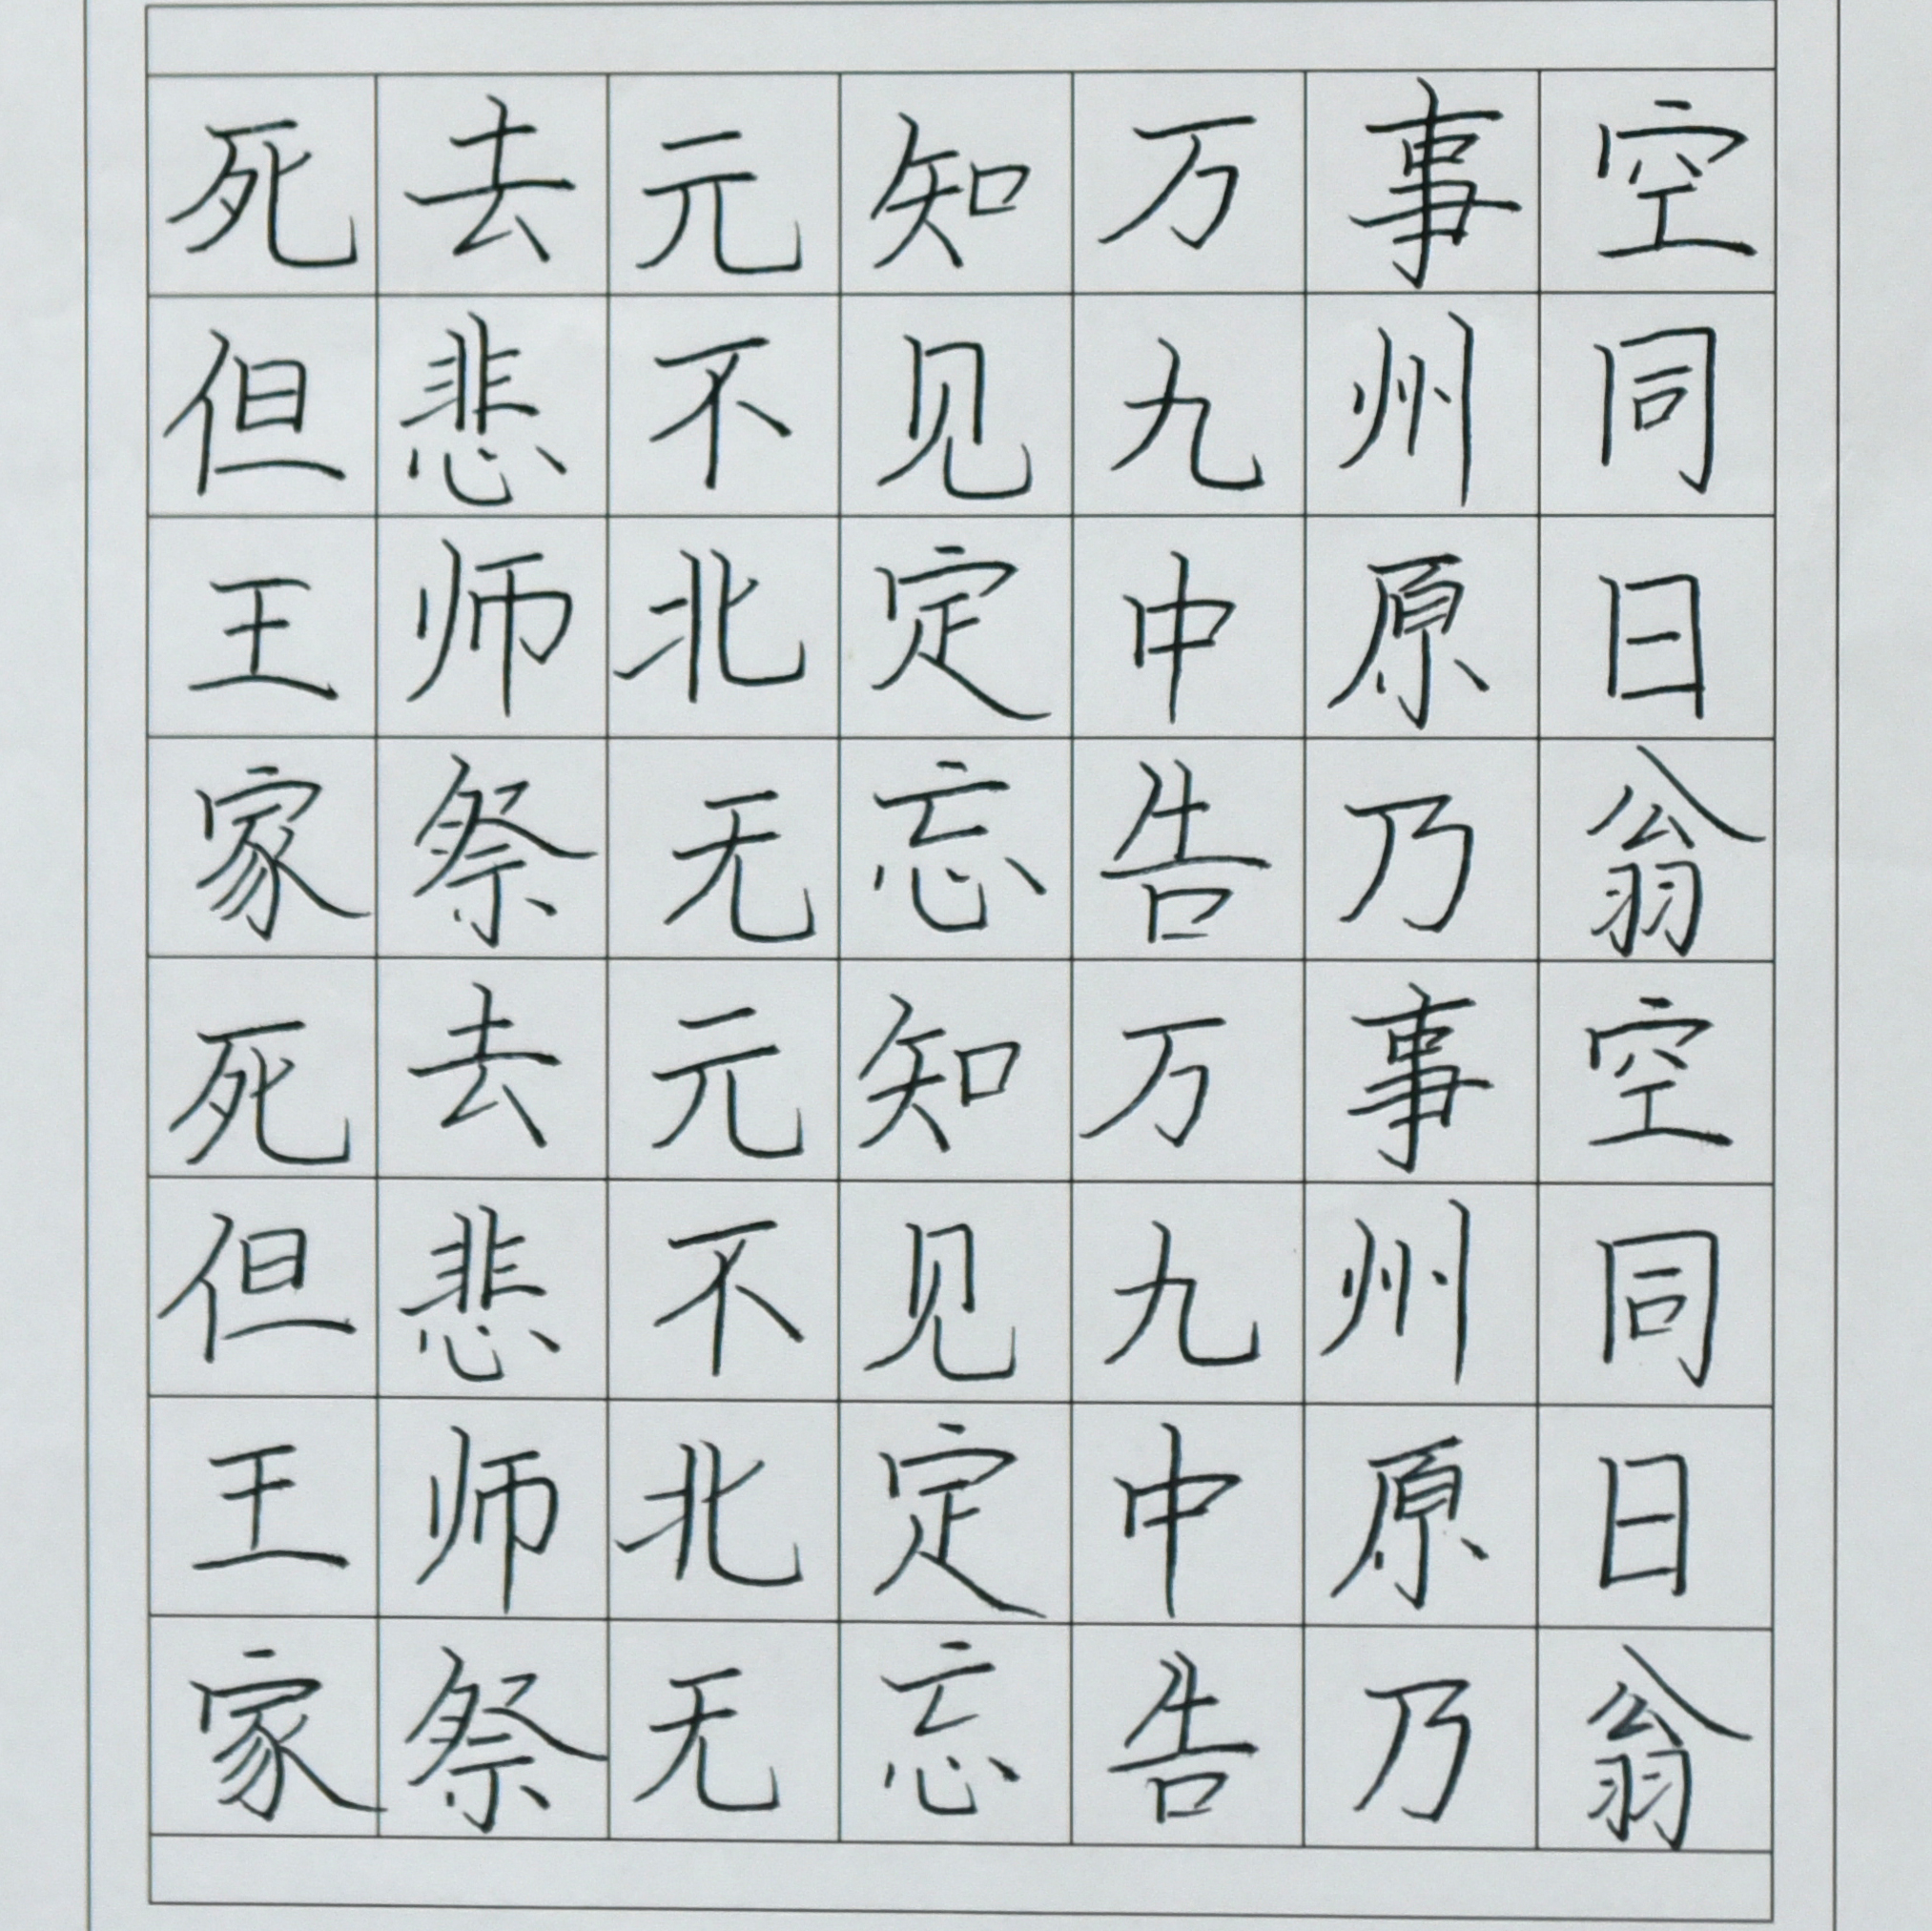 死去元知万事空
但悲不见九州同
王师北定中原日
家祭无忘告乃翁
死去元知万事空
但悲不见九州同
王师北定中原日
家祭无忘告乃翁